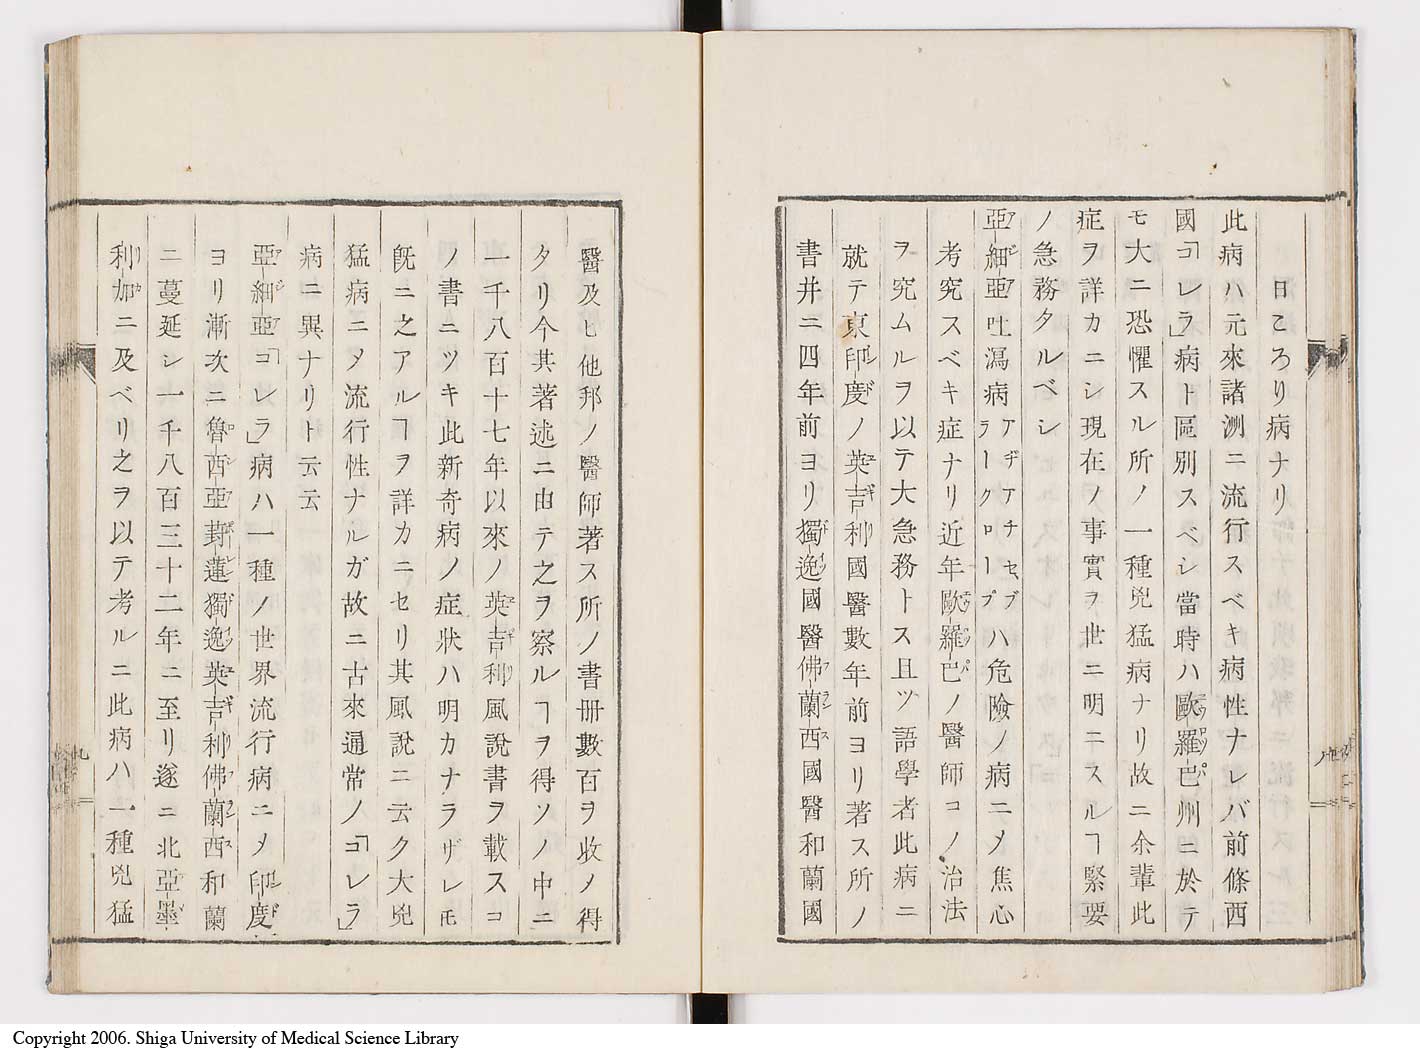 日ころり病ナリ
此病ハ元來諸洲ニ流行スベキ病性ナレバ前條西
國「コレラ」病ト區別スベシ當時ハ歐羅巴州ニ於テ
モ大ニ恐懼スル所ノ一種兇猛病ナリ故ニ余輩此
症ヲ詳カニシ現在ノ事實ヲ世ニ明ニスルヿ緊要
ノ急務タルベシ
亞細亞吐瀉病アヂアチセブラークロープハ危險ノ病ニメ焦心
考究スベキ症ナリ近年歐羅巴ノ醫師コノ治法
ヲ究ムルヲ以テ大急務トス且ツ語學者此病ニ
就テ東印度ノ英吉利國醫數年前ヨリ著ス所ノ
書并ニ四年前ヨリ獨逸國醫佛蘭西國醫和蘭國
醫及ヒ他邦ノ醫師著ス所ノ書冊數百ヲ收メ得
タリ今其著述ニ由テ之ヲ察ルヿヲ得ソノ中ニ
一千八百十七年以來ノ英吉利風說書ヲ載スコ
ノ書ニツキ此新奇病ノ症狀ハ明カナラザレ𪜈
旣ニ之アルヿヲ詳カニセリ其風說ニ云ク大兇
猛病ニメ流行性ナルガ故ニ古來通常ノ「コレラ」
病ニ異ナリト云云
亞細亞「コレラ」病ハ一種ノ世界流行病ニメ印度
ヨリ漸次ニ魯西亞葑蓮獨逸英吉利佛蘭西和蘭
ニ蔓延シ一千八百三十二年ニ至リ遂ニ北亞墨
利加ニ及ベリ之ヲ以テ考ルニ此病ハ一種兇猛
Copyright 2006. Shiga University of Medical Science Library